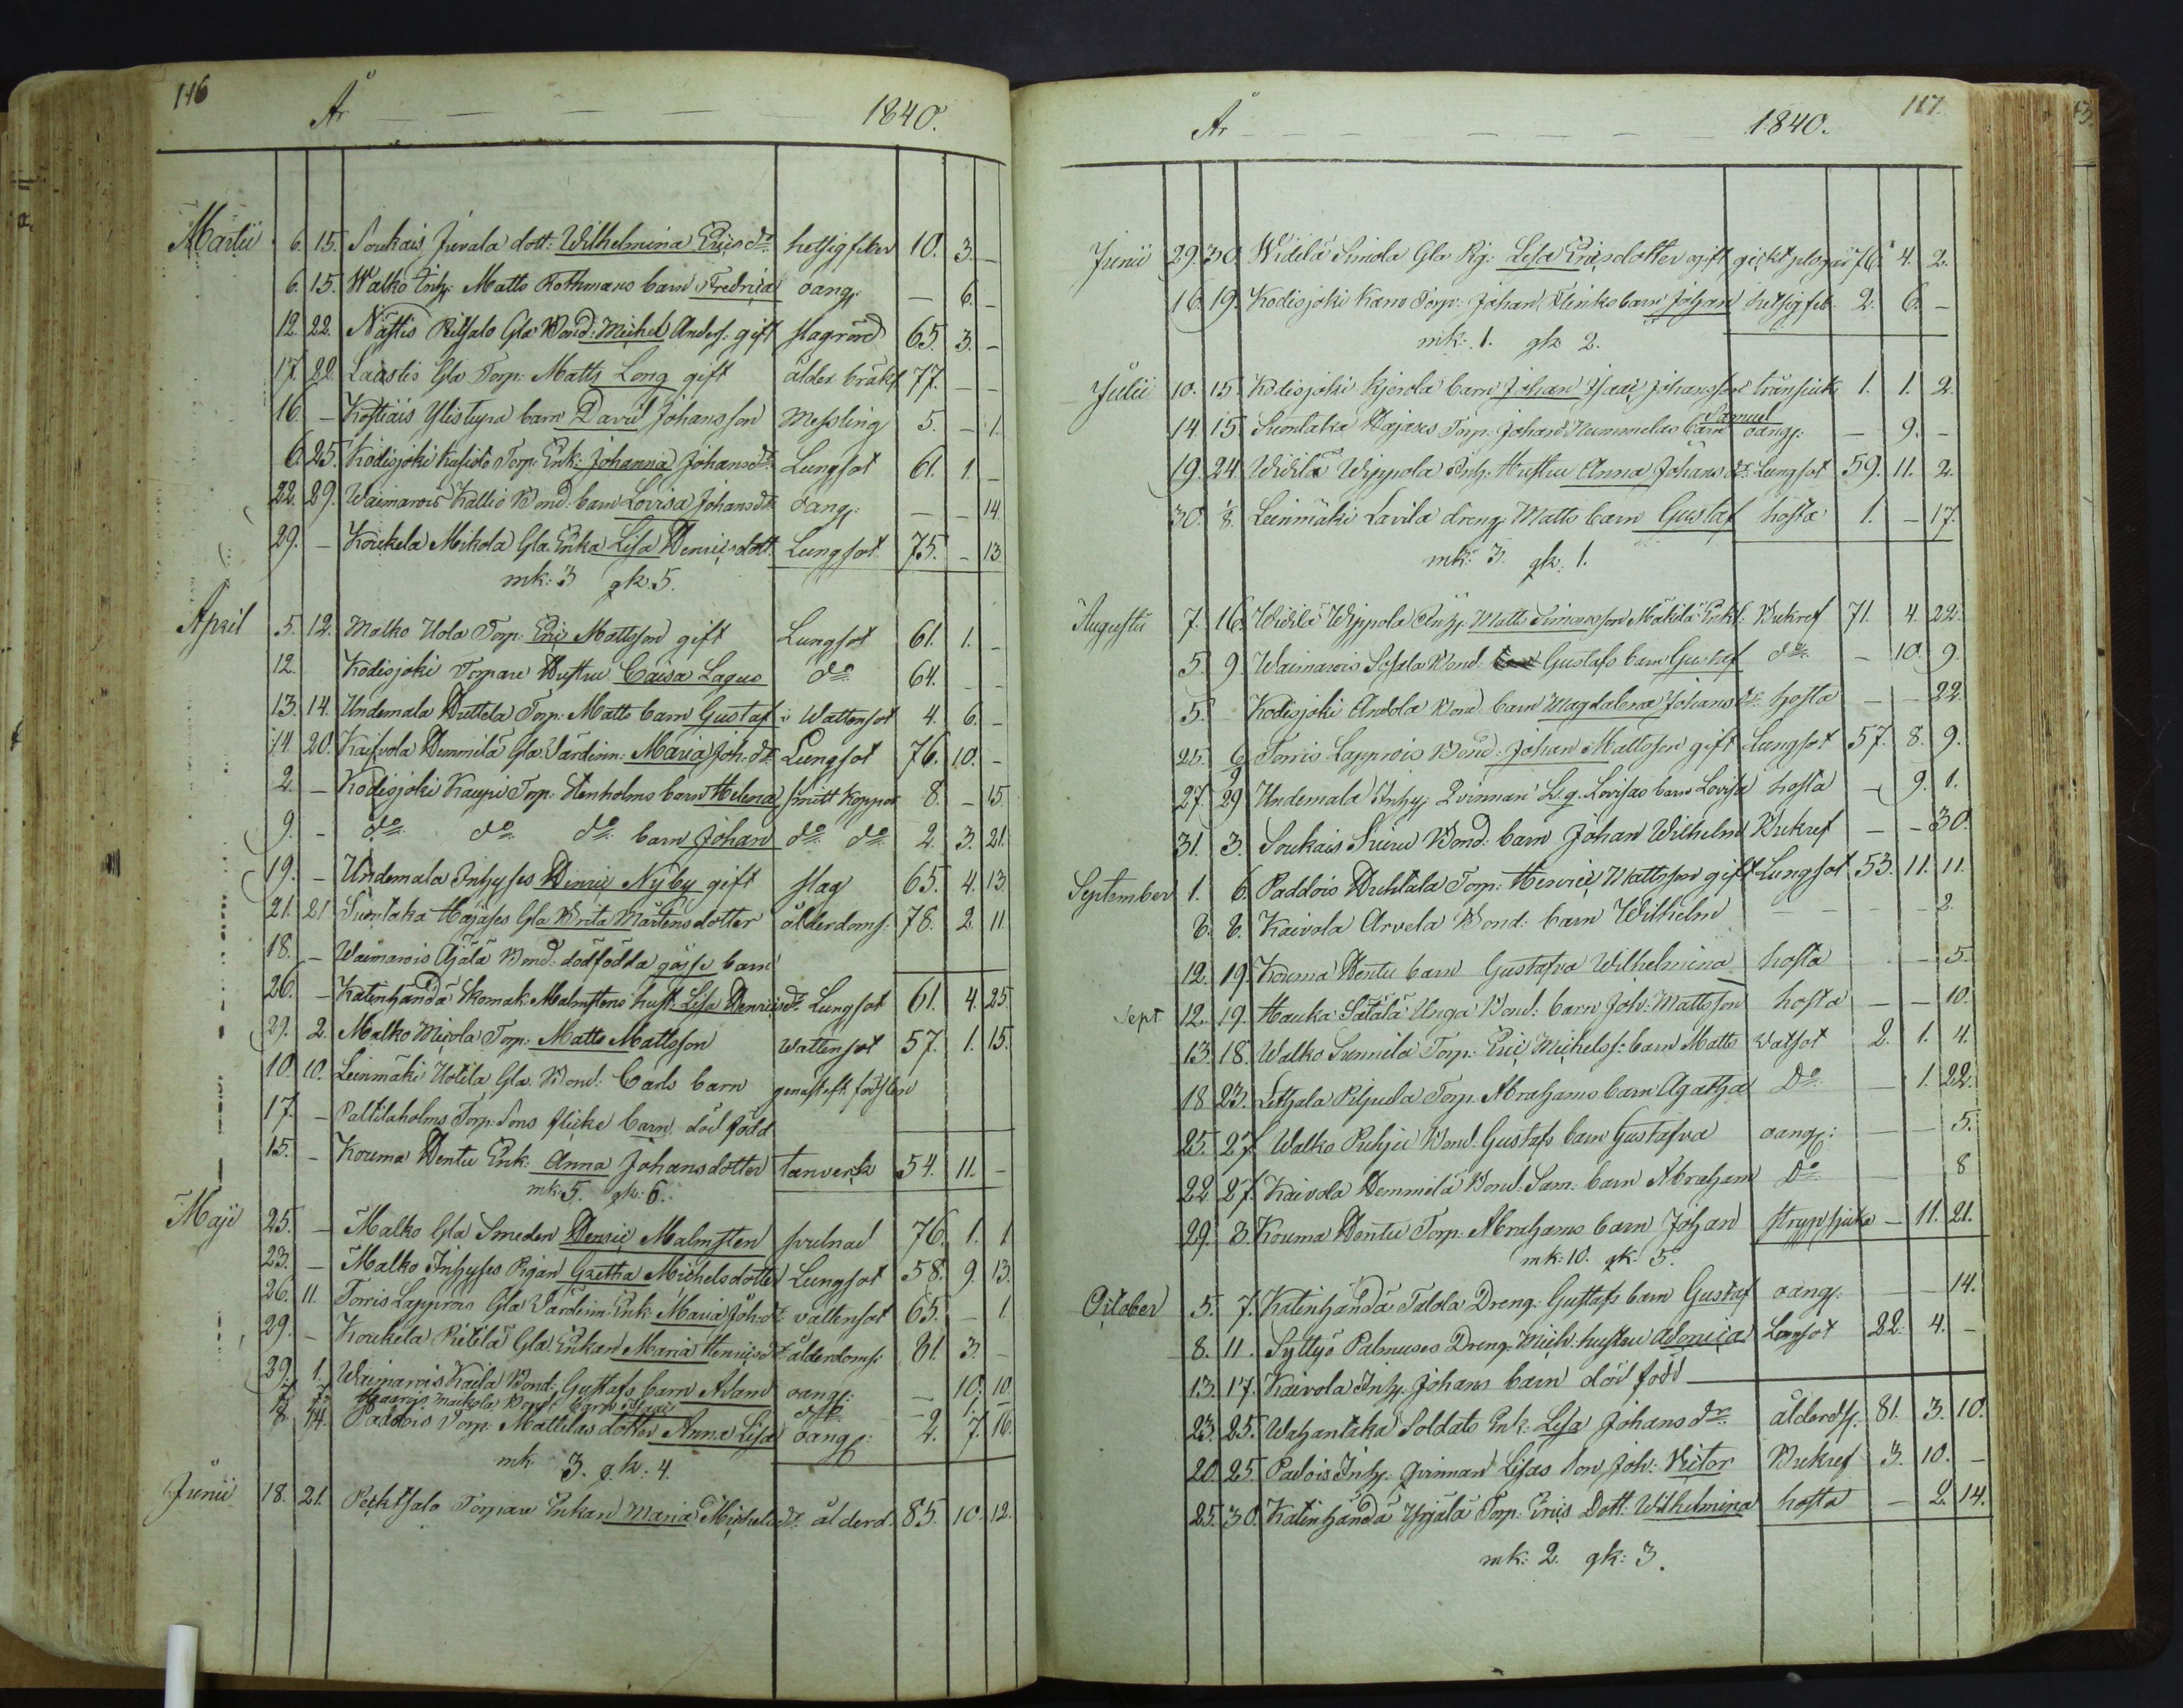 116
År 1840.
Martii 6. 15. Soukais Juvala dott: Wilhelmina Ericsdr hetsig feber 10. 3. –
6. 15. Walko Inh: Matts Rothmans barn Fredrica oang: – 6. –
12. 22. Nästis Riksalo Gla Bond: Michel Anders: gift slagrörd 65. 3. –
17. 22. Laaslis Gla Torp: Matts Long gift ålder. bräkl 77. – –
16. – Koskiais Ylistupa barn David Johansson Messling 5. – 1.
6. 25. Kodisjoki Torp: Enk: Johanna Johansdr Lungsot 61. 1. –
22. 29. Waimarois Kallio Bond: barn Lovisa Johansdr oang: – – 14.
29. – Koukela Mikola Gla Enka Lisa Henricsdott. Lungsot 75. – 13
mk: 3 qk. 5.
April 5. 12. Malko Uola Torp: Eric Mattsson gift Lungsot 61. 1. –
12. Kodisjoki Torpare Hustru Caisa Lagus do 64. – –
13. 14. Undemala Huttela Torp: Matts barn Gustaf i Wattensot 4. 6. –
14. 20. Kaivola Hemmilä Gla Värdinn: Maria Joh: dr Lungsot 76. 10. –
2. – Kodisjoki Kaupi Torp: Stenholms barn Helena smitt Koppor 8. – 15.
9. – do do do barn Johan do do 2. 3. 21.
19. – Undemala Inhyses Henric Nyby gift slag 65. 4. 13.
21. 21 Suontaka Hajases Gla Brita Mårtensdotter ålderdoms: 78. 2. 11
18. – Waimarois Äjälä Bond: dödfödda gosse barn
26. – Katinhändä Skomak: Malmstens hust. Lisa Henricsdr Lungsot 61. 4. 25.
29. 2. Malko Torp: Matts Mattsson wattensot 57. 1. 15.
10. 10. Leinmäki Uotila Gla Bond: Carls barn genast eft. födslen
17. – Paltilaholms Torp: Sons flicke barn död född
15. – Kouma Hentu Enk: Anna Johansdotter tanverk 54. 11. –
mk: 5. qk: 6.
Maji 25. – Malko Gla Smeden Henric Malmsten svulnad 76. 1. 1
23. – Malko Inhyses Pigan Gretha Michelsdotter Lungsot 58. 9. 13.
26. 11. Torris Lapprois Gla Värdinn: Enk: Maria Joh: dr vattensot 65. – 1
29. – Koukela Pietilä Gla Enkan Maria Henricsdr ålderdoms: 81. 3. –
29. 1. Waimarois Kaila Bond: Gustafs barn Adam oang: – 10. 10.
7. Maikola Bond: barn Isaac do – 1. –
8. 14. Paddois Torp: Mattilas dotter Anna Lisa oang: 2. 7. 16.
mk 3. qk: 4.
Junii 18. 21. Peiktsalo Torpare Enkan Maria Michelsdr ålderd. 85. 10. 12.
117.
År 1840.
Junii 29. 30. Widilä Simola Gla Pig: Lisa Ericsdotter ogift gicktplågor 76. 4. 2.
16. 19. Kodisjoki Karro Torp: Johan Flinks barn Johan hetsig feb: 2. 6. –
mk: 1. qk 2.
Julii 10. 15. Kodisjoki Kierola barn Johan Isaac Johansson tränsiuk 1. 1. 2.
Samuel
14. 15. Suontaka Hajases Torp: Johan Nummelas barn oang: – 9. –
19. 24. Widilä Wippola Inh: Hustru Anna Johans dr Lungsot 59. 11. 2.
30. 8. Leinmäki Lavila dreng Matts barn Gustaf hosta 1. – 17.
mk: 3. qk: 1.
Augusti 7. 16. Widilä Wippola Inh: Matts Simonsson Mäkilä Enkl: Bukref 71. 4. 22.
5. 9. Waimarois Sofala Bond: Gustafs barn Gustaf do – 10. 9.
5. Kodisjoki Andola Bond: barn Magdalena Johans dr hosta – – 22.
25. 6. Torris Lapprois Bond: Johan Mattsson gift Lungsot 57. 8. 9.
27. 29 Undemala Inhy: Qvinnan L. g. Lovisas barn Lovisa hosta – 9. 1.
31. 3. Soukais Bond: barn Johan Wilhelm Bukref – – 30.
September 1. 6. Paddois Huhtala Torp: Henric Mattsson gift Lungsot 53. 11. 11.
6. 6. Kaivola Arvela Bond: barn Wilhelm – – – 2.
12. 19. Kouma Hentu barn Gustafva Wilhelmina hosta – – 5.
Sept 12. 19. Hauka Sätälä Unga Bond: barn Joh: Mattsson hosta – – 10.
13. 18. Walko Sunnila Torp: Eric Michelss: barn Matts watsot 2. 1. 4.
18 23. Lethala Piljula Torp: Abrahams barn Agatha Do – 1. 22.
25. 27. Walko Bond: Gustafs barn Gustafva oang: – – 5.
22 27. Kaivola Hemmilä Bond: Sam: barn Abraham Do – – 8
29. 3. Kouma Hentu Torp: Abrahams barn Johan strypsjuka – 11. 21.
mk: 10. qk: 5.
October 5. 7. Katinhändä Talola Dreng: Gustafs barn Gustaf oang: – – 14.
8. 11. Syttyö Palmuses Dreng Mich: hustru Lovisa Lungsot 22. 4. –
13. 17. Kaivola Inh: Johans barn död född
23. 25. Wahantaka Soldats Enk: Lisa Johans dr ålderds. 81. 3. 10.
20. 25 Padois Inh: Qvinnan Lisas Son Joh: Victor Bukref 3. 10. –
25. 30. Katinhändä Yrjälä Torp: Erics Dott: Wilhelmina hosta – 2. 14.
mk: 2. qk: 3.